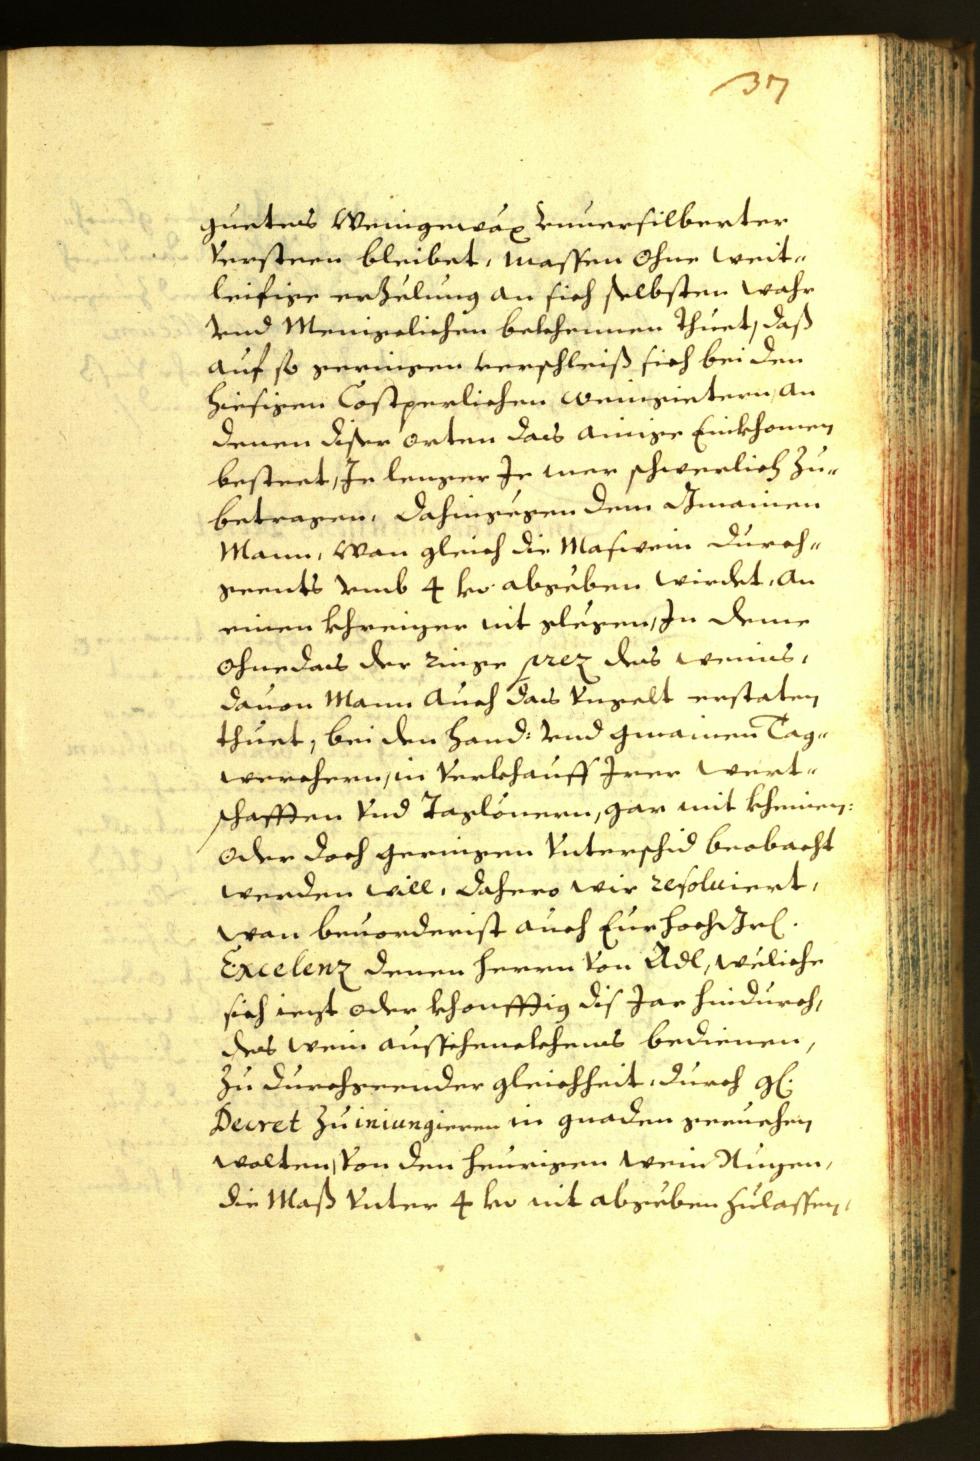 37
guetes Weingewäx vnuersilberter
Versteen bleibet, massen ohne weit-
leifige erzelung an sich selbsten wahr
vnd Menigelichen bekhennen thuet, daß
auf so geringen verschleiß sich bei den
hiesigen Costperlichen weingietern, an
denen diser orten das ainige Einkhomen
besteet, Je lenger Je mer schwerlich zu-
betragen, dahingegen dem Gmainen
Mann, wan gleich die Maswein durch-
geents vmb 4 kr abgeben wirdet, an
einen khreizer nit glegen, In deme
ohne das der ringe prez des weins,
dauon Mann auch das vngelt erstaten
thuet, bei den Hand: vnd gmainen Tag-
werchern, in Verkhauff Irer wert-
schafften vnd Taglönern, gar mit kheinen:
oder doch geringen vnterschid beobacht
werden will, dahero wir resoluiert,
wan beuorderist auch Eur hoch Grl.
Excelenz denen herrn von Adl, weliche
sich iezt oder khonfftig dis Jar hindurch,
des wein ausschenckhens bedienen,
zu durchgeender gleichheit, durch gl.
Decret zu iniungieren in gnaden geruehen
wolten, von den heurigen wein Nuzen,
die Maß vnter 4 kr nit abgeben zulassen,